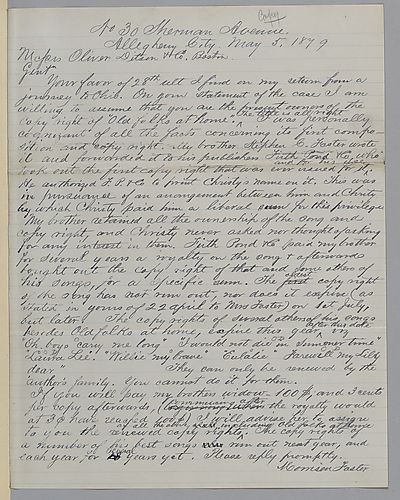 Copy
No 30 Sherman Avenue.
Allegheny City. May 5, 1879
Messrs Oliver Ditson & Co, Boston.
Gent
Your favor of 28th ult I find on my return from a
journey to Ohio. On your statement of the case I am
willing to assume that you are the present owners of the
The title is all right.
copy right of "Old folks at home". I was personally
cognizant of all the facts concerning its first compo-
sition and copy right. My brother Stephen C. Foster wrote
it and forwarded it to his publishers Firth Pond & Co, who
took out the first copy right that was ever issued for it.
He authorized F. P & Co to print Christy's name on it. This was
in pursuance of an arrangement between him and Christy
by which Christy paid him a liberal sum for this privilege
My brother retained all the ownership of the song and
copy right, and Christy never asked nor thought of asking
for any interest in them. Firth Pond & Co paid my brother
for several years a royalty on the song & afterwards
bought out the copy right of that and some others of
his songs, for a specific sum. The first copy right
of the song has not run out, nor does it expire (as
stated in yours of 22 april to Mrs Foster) on 1st July
but later. The copy rights of several others of his songs
besides Old folks at home, expire this year,
after this date
"Oh boys carry me long" "I would not die in summer time"
"Laura Lee". "Willie my brave" "Eulalie" "Farewell my Lilly
dear" They can only be renewed by the
author's family. You cannot do it for them.
If you will pay my brothers widow 100 $, and 3 cents
per copy afterwards, the royalty would
at 3¢ have reached 100 $ I will advise her to assign
of all the above songs, including Old folks at home
to you the renewed copy right. The copy right of
a number of his best songs run out next year, and
each year, for several years yet. Please reply promptly.
Morrison Foster